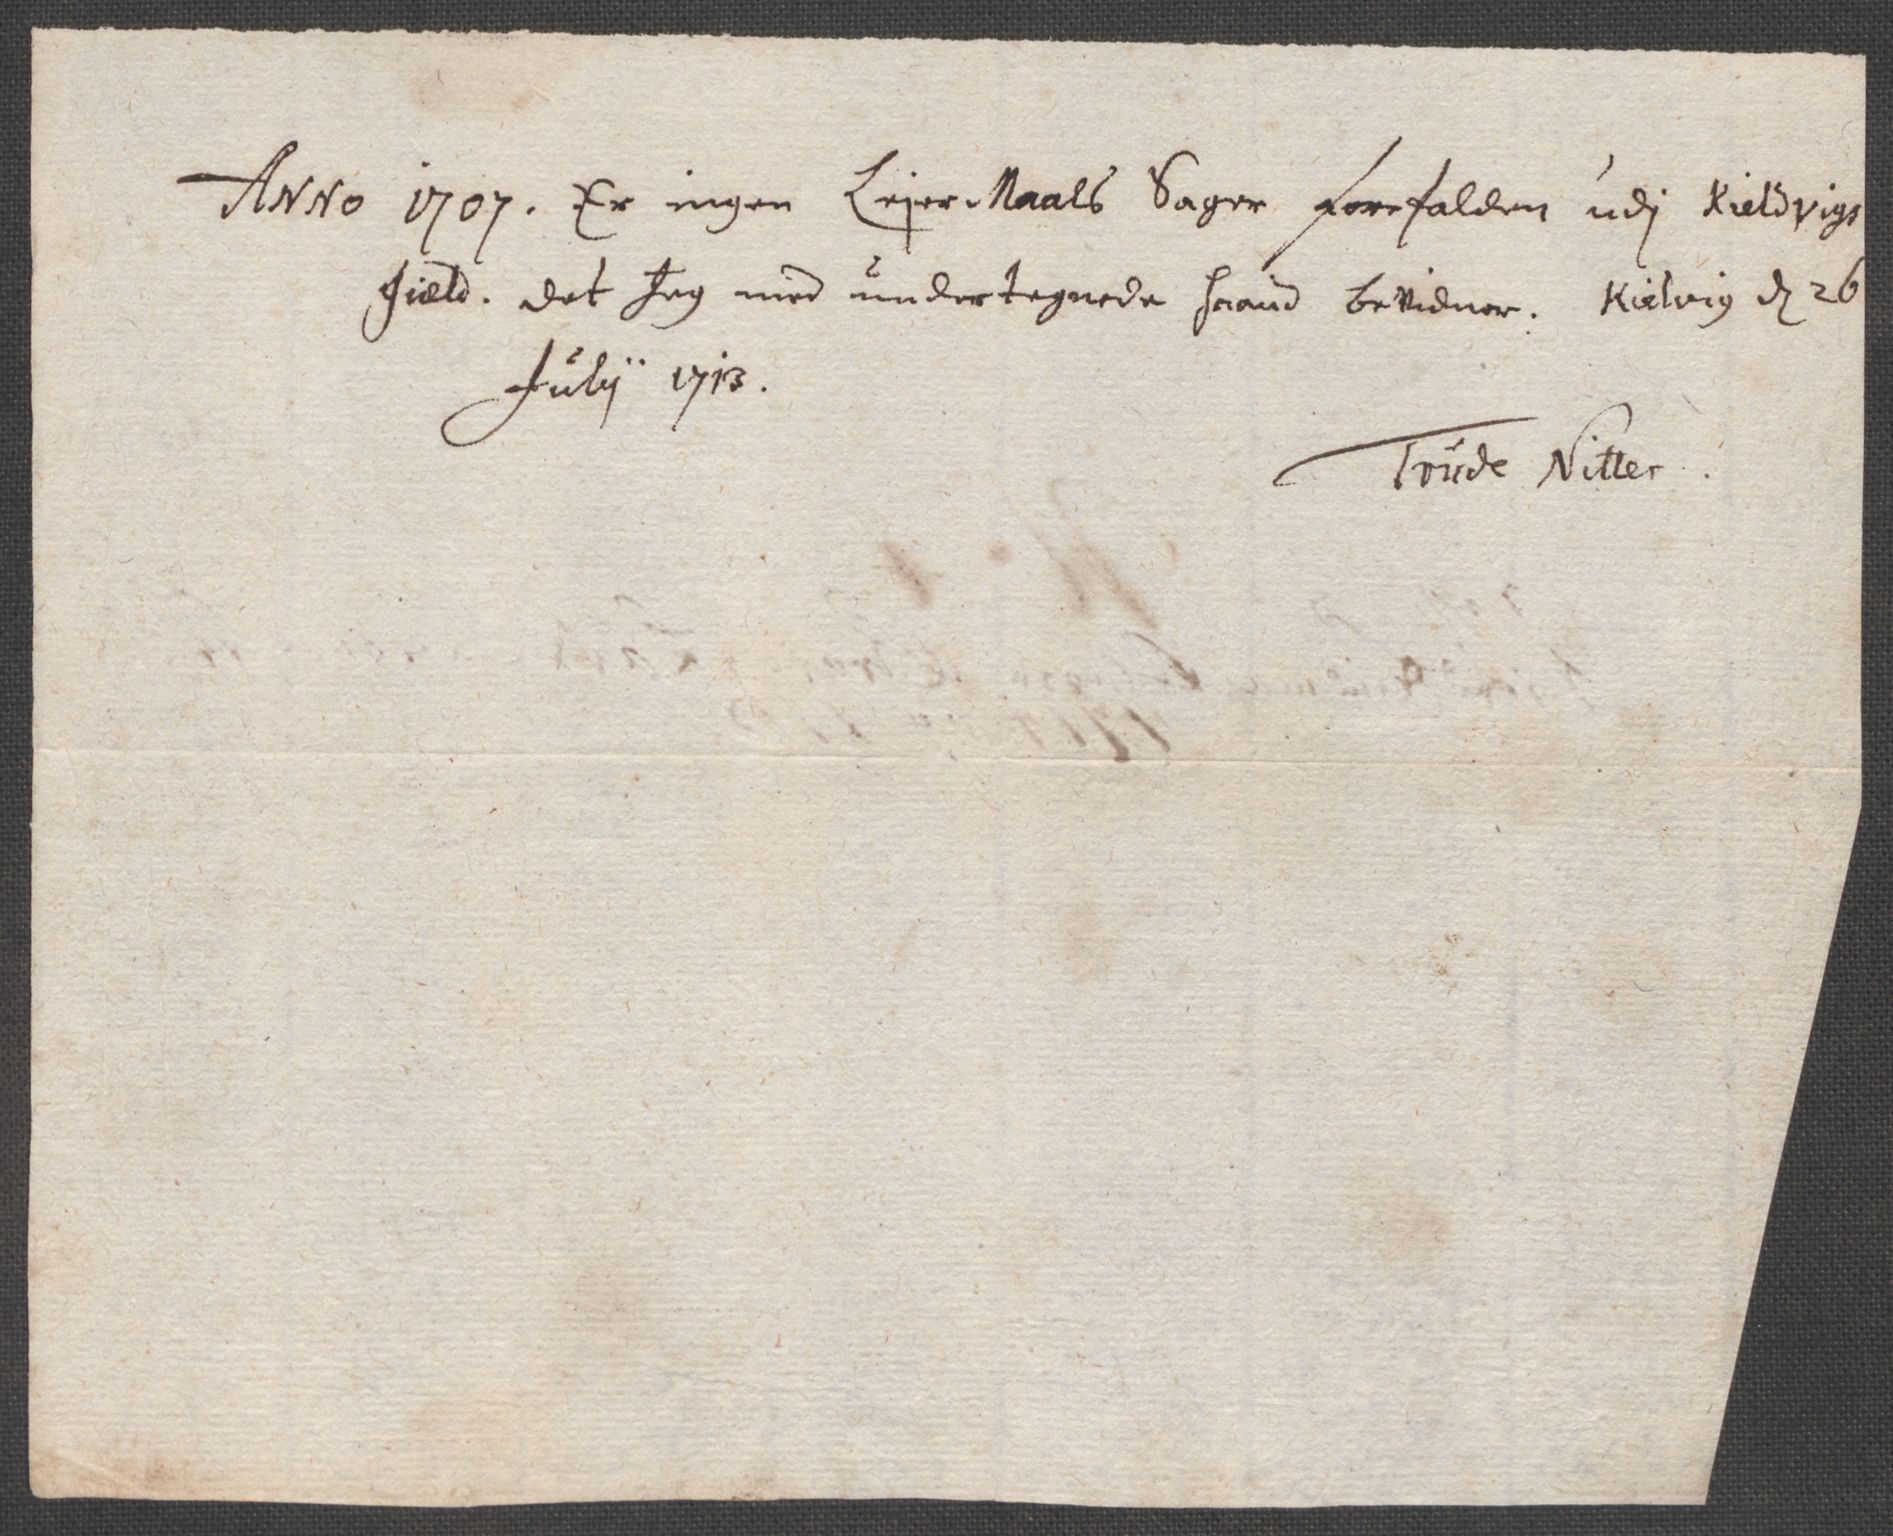 Anno 1707. Er ingen Leyer Maals Sager forefalden udj Kieldvigs
Gield. det Jeg med undertegnede haand bevidner. Kielvig d 26
Julij 1713.
Trude Nitter.